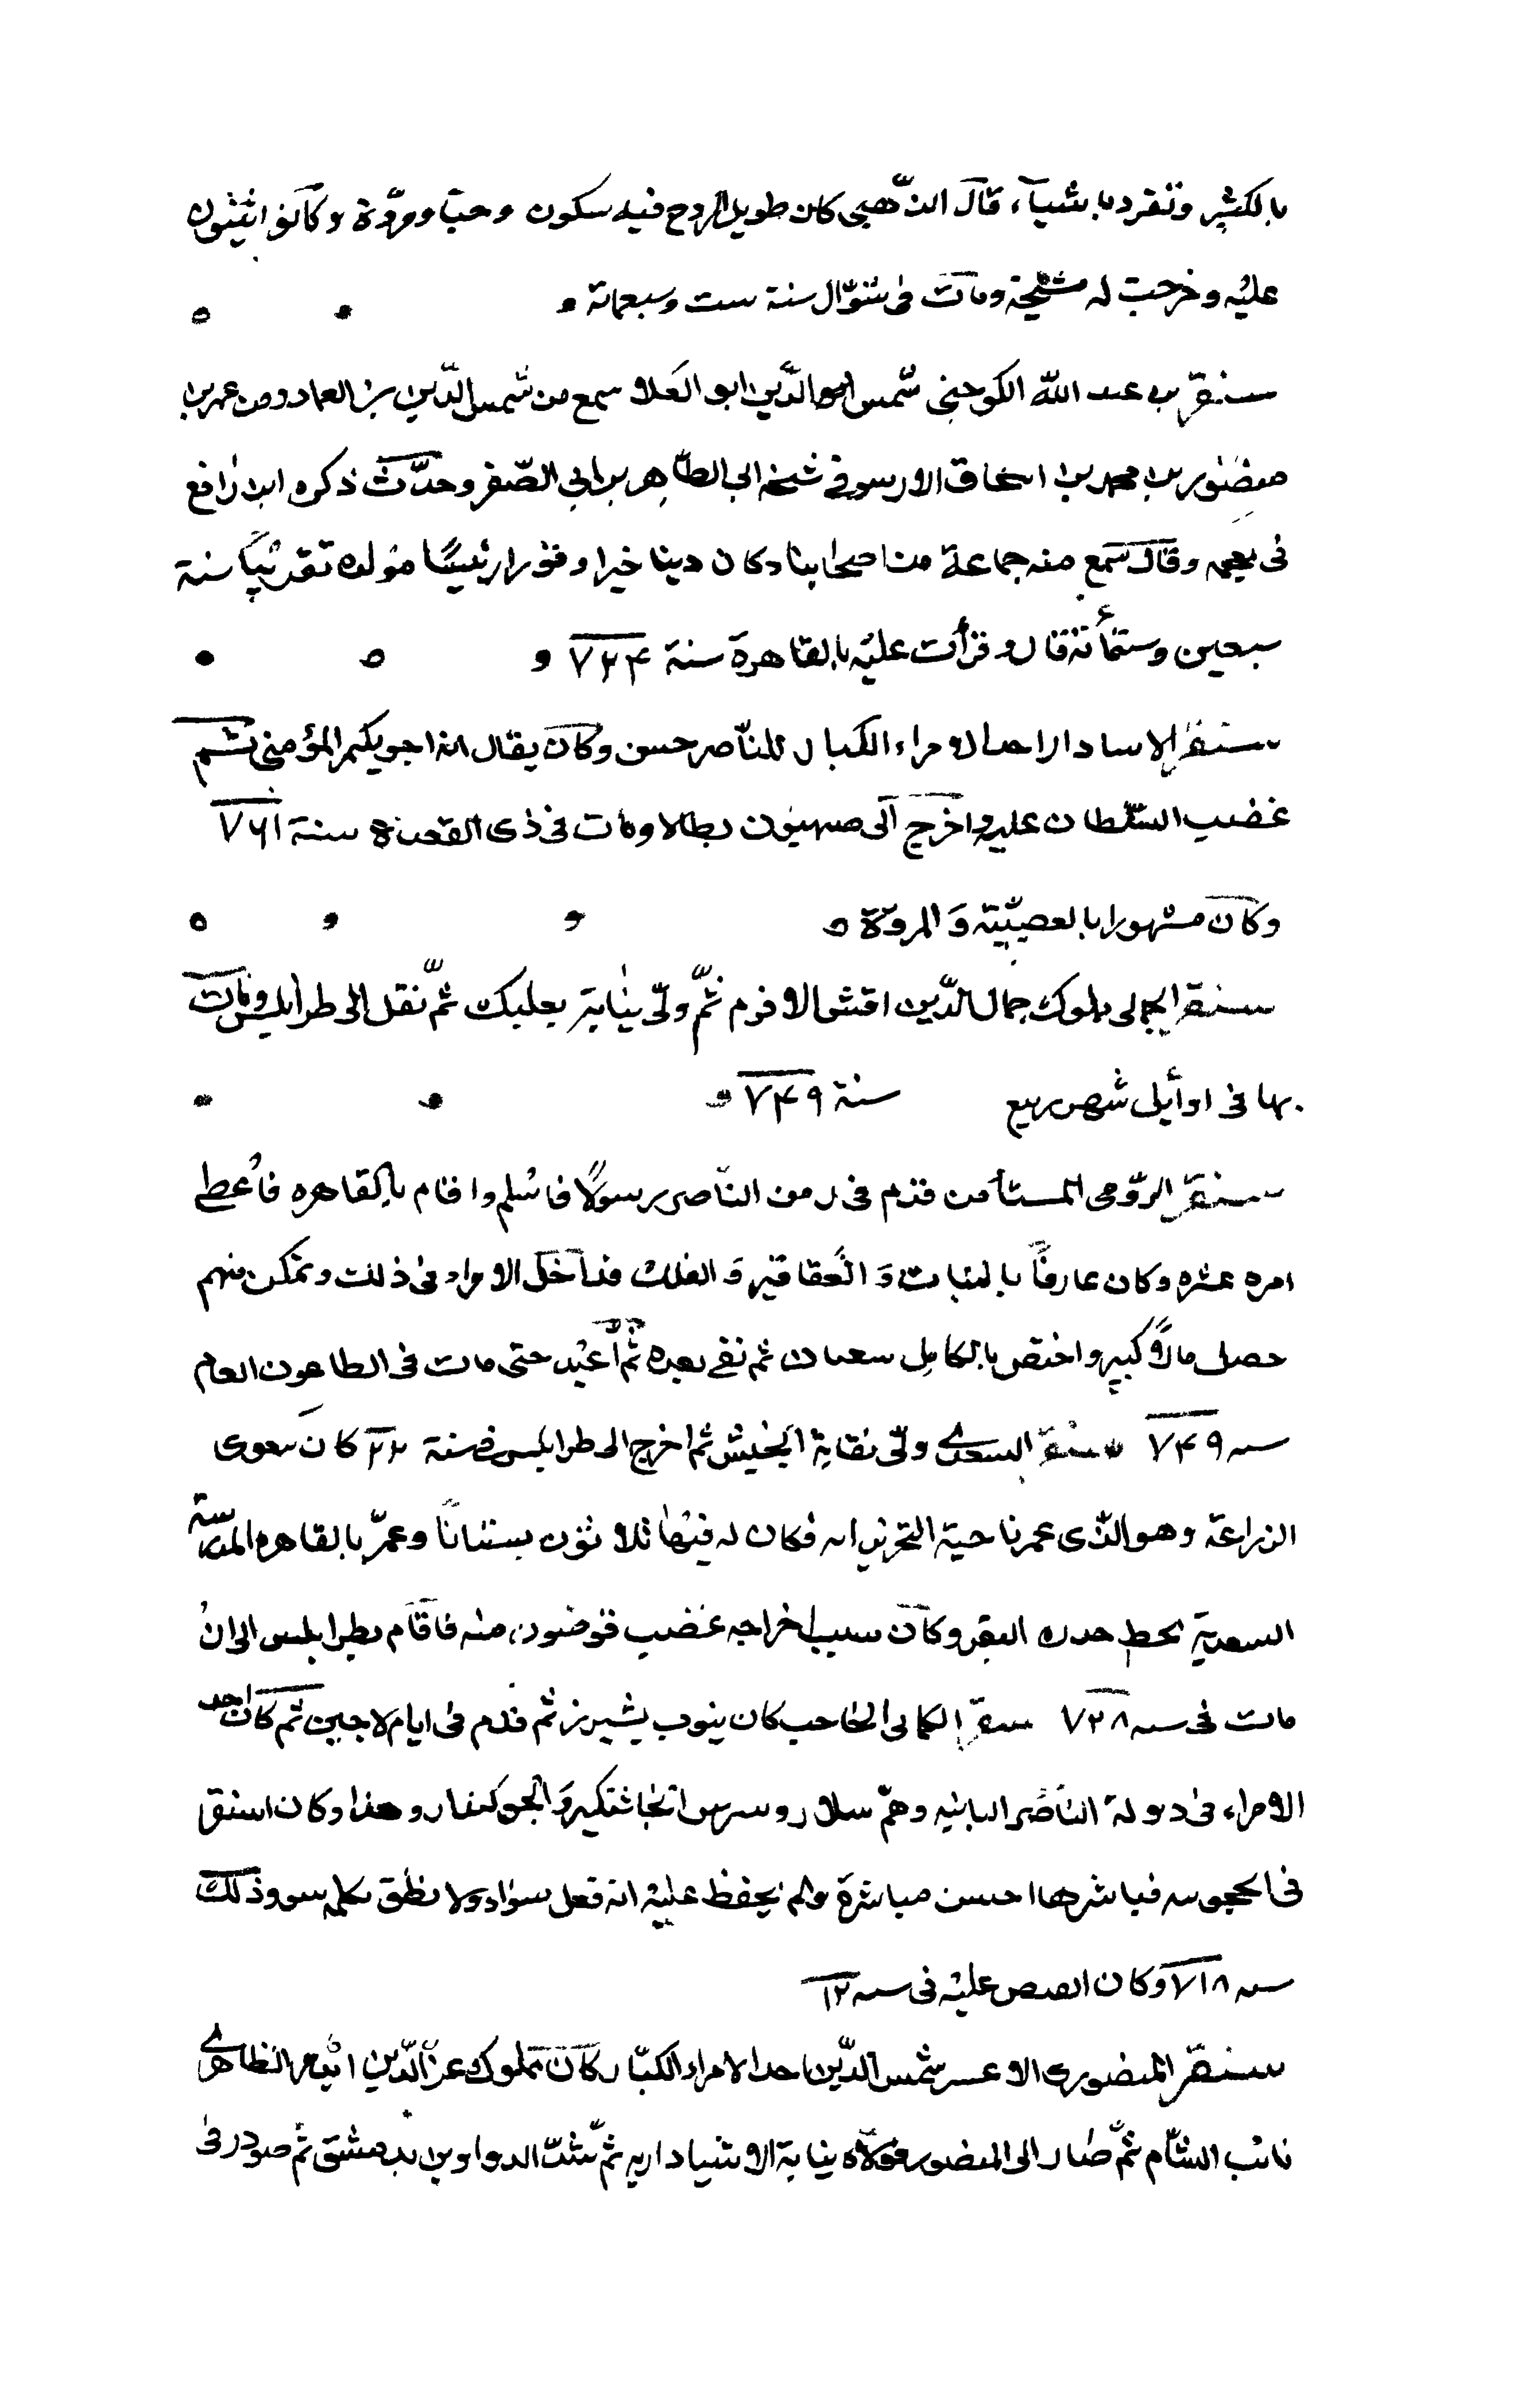 بالكثير وتفرد باشيآء قال الذّهبي كان طويل الروح فيه سكون وحيا ومروّدة وكانوا يثنون
عليه وخرجت له مشيخة ومات فى شوّال سنة ست وسبعمائة
سنقر بن عبد اللّه الكوجبى شمس الدّين ابو العلا سمع من شمس الدّين بن العماد ومن عمر بن
منصور بن محمد بن اسحاق الارسوفى شيخه ابى الطّاهر بن ابى الصّقر وحدّث ذكره ابن رافع
فى معجمه وقال سمع منه جماعة من اصحابنا وكان دينا خيرا وقورا رئيسًا مولده تقريبًا سنة
سبعين وستمأئة قال وقرأت عليه بالقاهرة سنة ٧٢۴
سنقر الاسادار احد الامراء الكبار للناّصر حسن وكان يقال انه اخو يكمر المؤمنى ثم
غضب السّلطان عليه واخرج الى صهيون بطالا ومات فى ذى القعدة سنة ٧۶١
وكان مشهورا بالعصبيّة والمروّة
سنقر الجمالى مملوك جمال الدّين اقش الافرم ثمّ ولّى نيابة بعلبك ثمّ نقل الى طرابلس ومات
بها فى اوائل شهر ربيع سنة ٧۴٩
سنقر الرّومى المستأمن قدم فى زمن النّاصر رسولًا فاسلم واقام بالقاهره فأعطى
امره عشره وكان عارفاً بالنبات والعقاقير والفلك فداخل الامراء فى ذلك وتمكن منهم
حصل مالًا كبير واختص بالكامل شعبان ثم نفى بعده ثم أعيد حتى مات فى الطاعون العام
سنه ٧۴٩ سنقر السعدى ولّى نقابة الجيش ثم اخرج الى طرابلس فى سنة ٢٢ كان يهوى
الزراعة وهو الذّى عمر ناحية التحريرايه فكان له فيها ثلاثون بستاناً وعمّر بالقاهره المدرسة
السعديّة بخط حدره البقر وكان سبب اخراجه غضب قوصون منه فاقام بطرابلس الى ان
مات فى سنه ٧٢٨ سنقر الكمالى الحاجب كان ينوب بشيرز ثم قدم فى ايام لاجين ثم كان احد
الامراء فى دولة الناصر الثانيه وهمّ سلار وبيبرس الجاشنكير والجوكندار وهذا وكان استقر
فى الحجوبيه فباشرها احسن مباشرة ولم يحفظ عليه انه فعل سوءا ولا نطق بكلمه سوء وذلك
سنه ٧١٨ وكان القبض عليه فى سنه ١٢
سنقر المنصورى الاعسر شمس الدّين احد الامراء الكبّار كان مملوك عزّ الدّين ايدمر الظاهرى
نائب الشّام ثمّ صار الى المنصور فولّاه نيابة الاستيادارية ثمّ شدّ الدواوين بدمشق ثم صودر فى